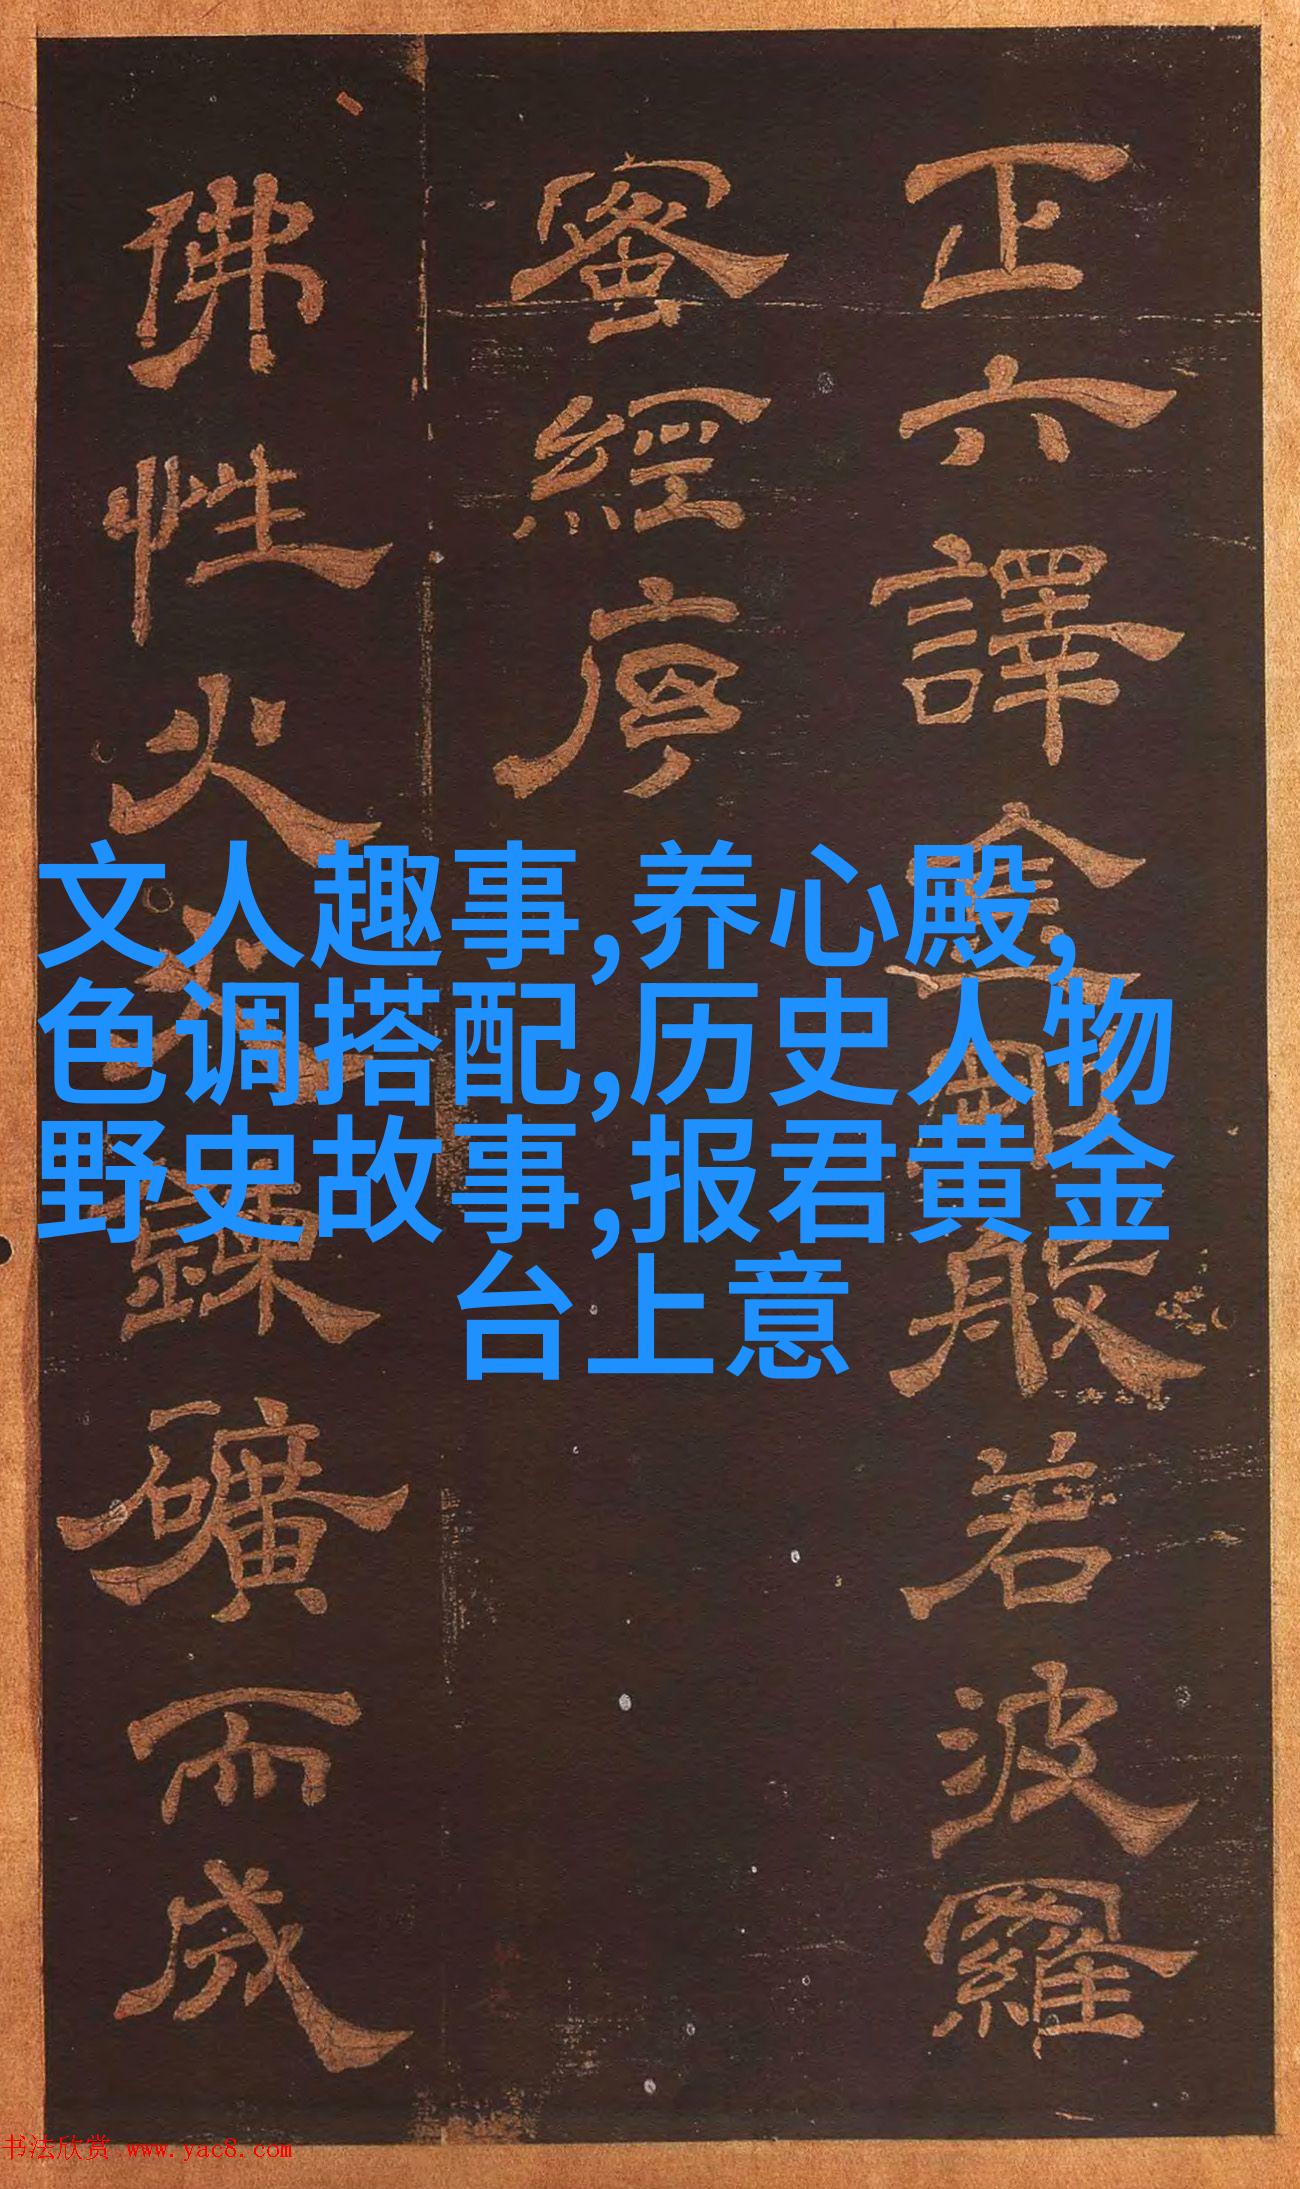 正六譯金剛般若波羅
蜜經序
佛性火來鍊礦而成
文人趣事,养心殿,
色调搭配,历史人物
野史故事,报君黄金
台上意
书法欣赏 www.yac8.com